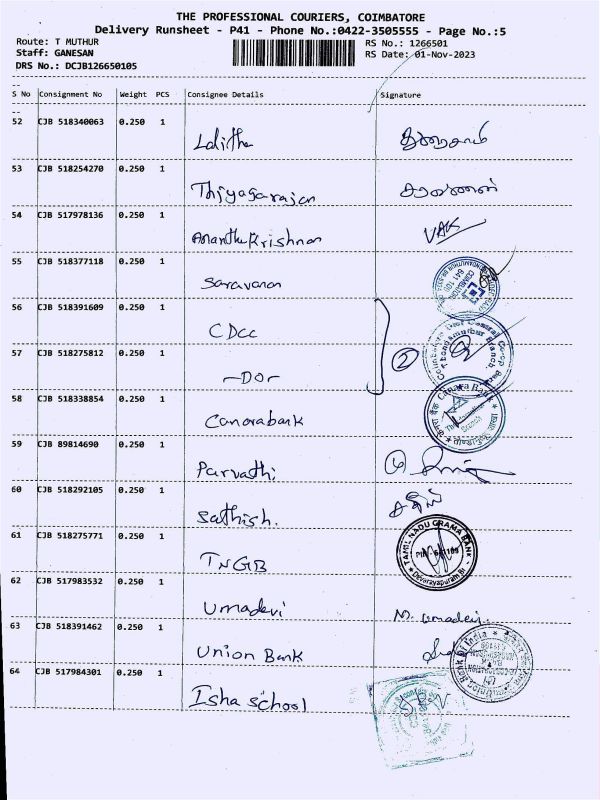 THE PROFESSIONAL COURIERS, COIMBATORE
Delivery Runsheet - P41 - Phone No.:0422-3505555 - Page No.:5
Route: T MUTHUR
RS No.: 1266501
Staff: GANESAN
RS Date: 01-Nov-2023
DRS No.: DCJB126650105
S No Consignment No Weight PCS Consignee Details Signature
52 CJB 518340063 0.250 1 Lalitha
53 CJB 518254270 0.250 1 Thiyagarajan சரவணன்
54 CJB 517978136 0.250 1 AnanthaKrishnan VAK
55 CJB 518377118 0.250 1 Saravanan
56 CJB 518391609 0.250 1 CDCC
Coimbatore Dist Central Coop Bank
2
57 CJB 518275812 0.250 1 -Do-
58 CJB 518338854 0.250 1 Canarabank
Canara Bank
59 CJB 89814690 0.250 1 Parvathi
60 CJB 518292105 0.250 1 Sathish. சதீஸ்
61 CJB 518275771 0.250 1 TNGB
TAMIL NADU GRAMA BANK
Devarayapuram Br
62 CJB 517983532 0.250 1 Umadevi M. Umadevi.
63 CJB 518391462 0.250 1 Union Bank
Union Bank Of India
64 CJB 517984301 0.250 1 Isha school